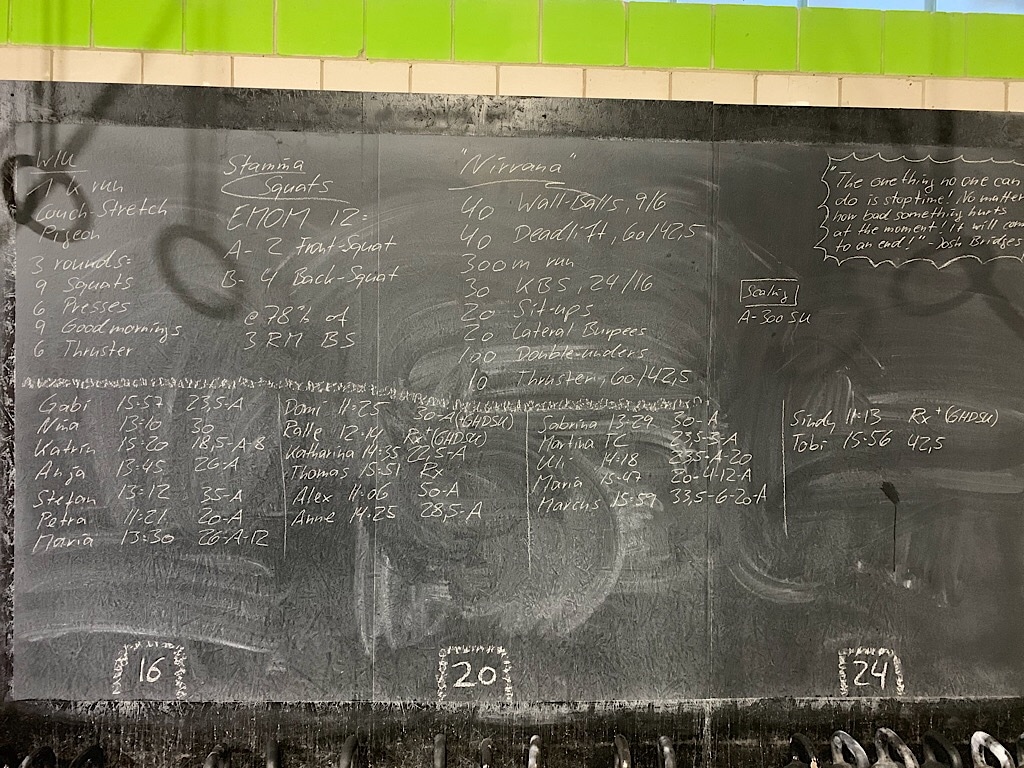 W/U
1 k run
Couch-Stretch
Pigeon
3 rounds:
9 Squats
6 Presses
9 Goodmornings
6 Thruster
Stamina
Squats
EMOM 12:
A- 2 Front-Squat
B- 4 Back-Squat
@ 78% of
3 RM BS
"Nirvana"
40 Wall-Balls, 9/6
40 Deadlift, 60/42,5
300m run
30 KBS, 24/16
20 Sit-ups
20 Lateral Burpees
100 Double-unders
10 Thruster, 60/42,5
"The one thing no one can
do is stop time! No matter
how bad something hurts
at the moment! it will com
to an end!" - Josh Bridges
Scaling
A-300 SU
Gabi 15:57 23,5-A
Nina 13:10 30
Katrin 15:20 18,5-A-8
Anja 13:45 26-A
Stefan 13:12 35-A
Petra 11:21 20-A
Maria 13:30 26-A-12
Domi 11:25 30-A (GHDSU)
Ralle 12:14 Rx+ (GHDSU)
Katharina 14:35 22,5-A
Thomas 15:51 Rx
Alex 11:06 50-A
Anne 14:25 28,5-A
Sabrina 13:29 30-A
Martina TC 23,5-3-A
Uli 14:18 23,5-A-20
Maria 15:47 20-4-12-A
Marcus 15:59 33,5-6-20-A
Sindy 11:13 Rx+ (GHDSU)
Tobi 15:56 42,5
16
20
24